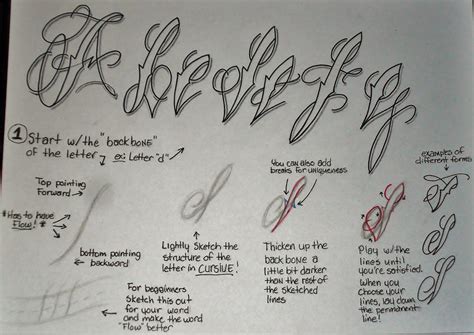 ① Start w/the "backbone"
of the letter → ex: Letter "d" →
Top pointing
Forward →
*Has to have
Flow!*
bottom pointing
← backward
For begginners
Sketch this out
for your word
and make the word
"Flow" better
d
Lightly Sketch the
structure of the
letter in CURSIVE!
You can also add
breaks for uniqueness
d
Thicken up the
backbone a
little bit darker
than the rest of
the sketched
lines
d
Play w/the
lines until
you're satisfied.
When you
choose your
lines, lay down
the permanent
line!
examples of
different forms
d
d
d